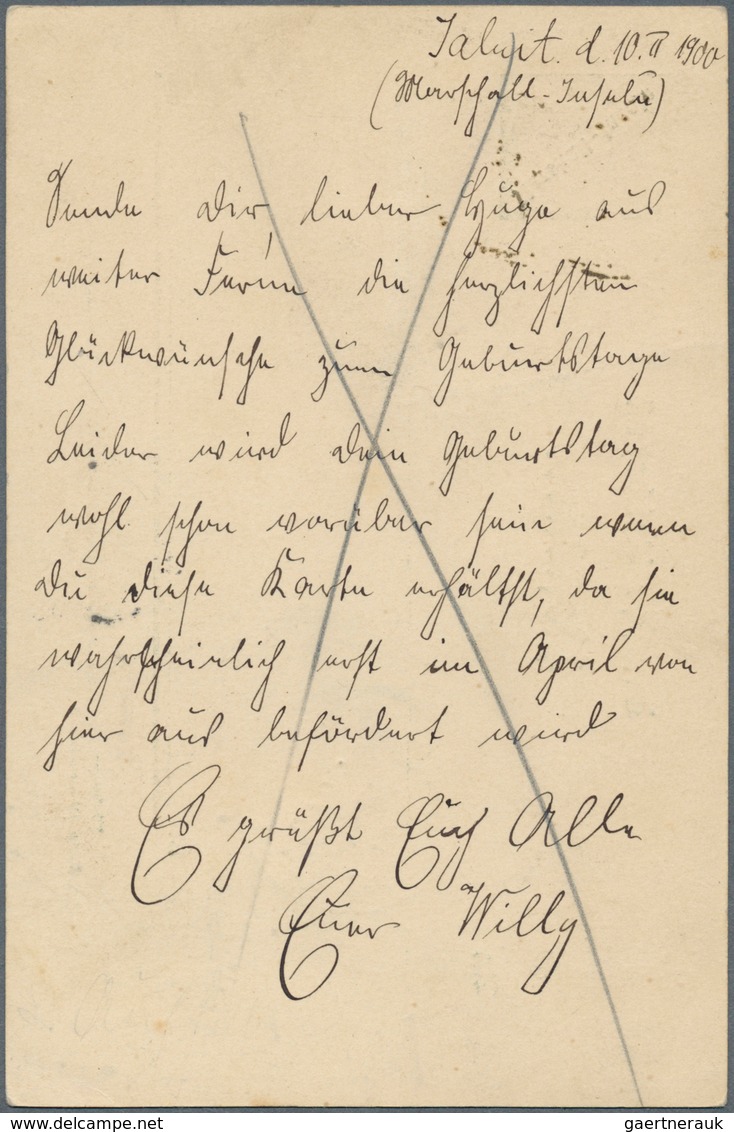 Jaluit. d. 10. II 1900
(Marschall-Inseln)
Sende dir, lieber Hugo aus
weiter Ferne die herzlichsten
Glückwünsche zum Geburtstage
Leider wird dein Geburtstag
wohl schon vorüber sein wenn
du diese Karte erhältst, da sie
wahrscheinlich erst im April von
hier aus befördert wird
Es grüßt Euch Alle
Euer Willy
gaertnerauk
delcampe.net